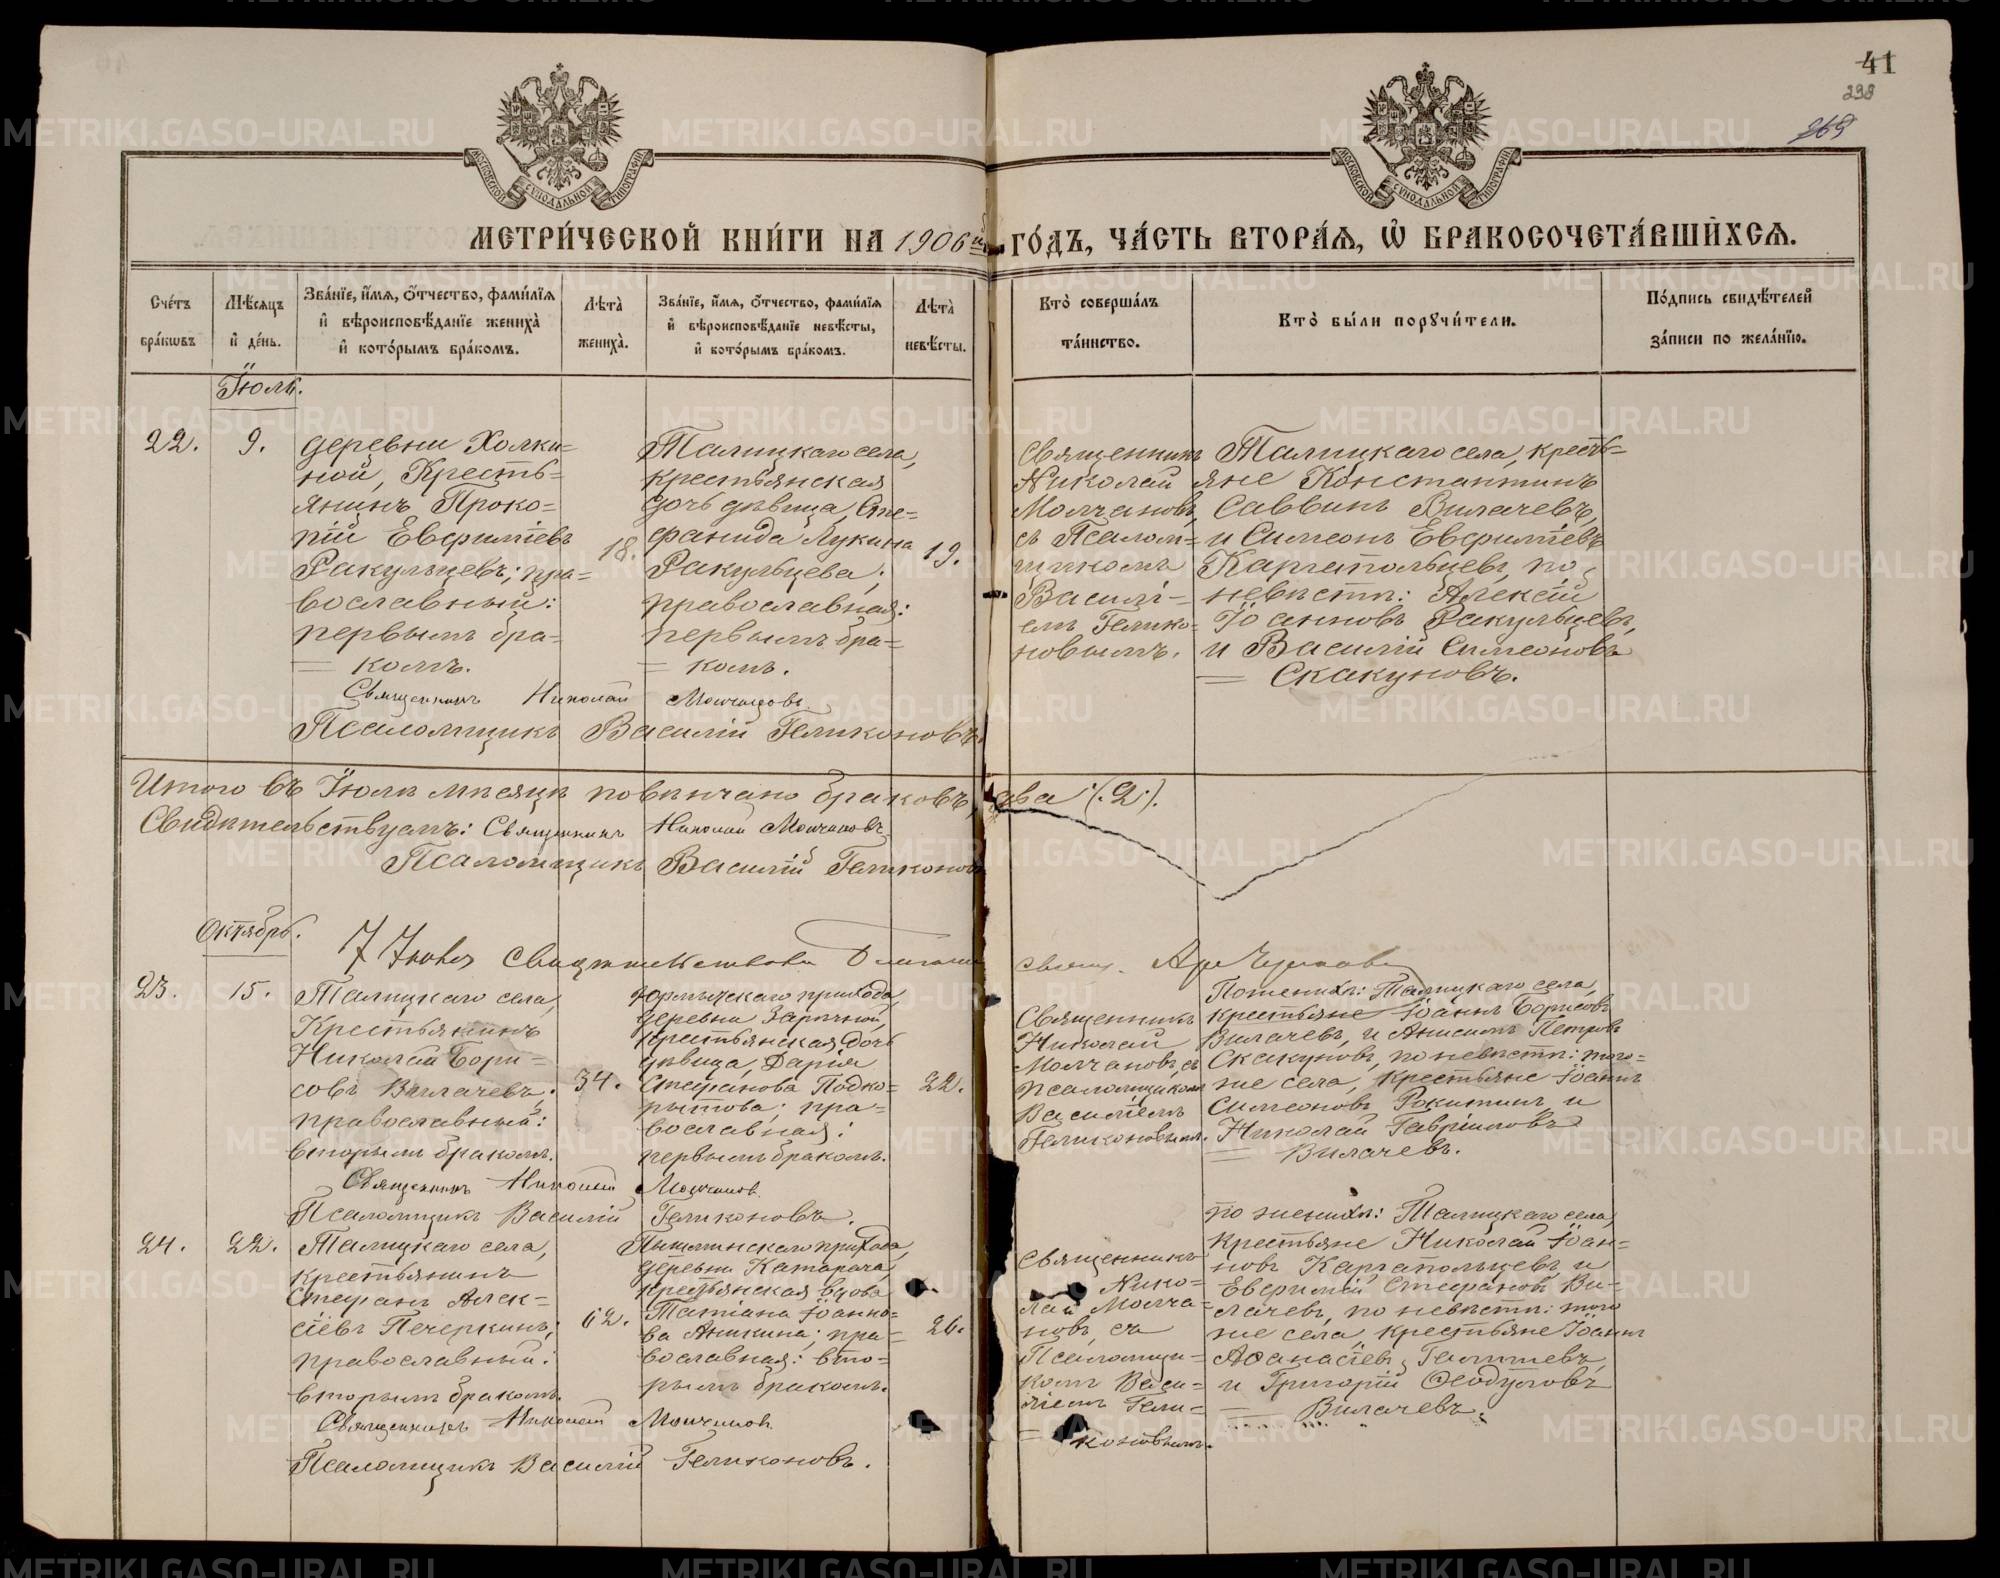 41
298
269
МОСКОВСКОЙ СѴНОДАЛЬНОЙ ТИПОГРАФІИ
МОСКОВСКОЙ СѴНОДАЛЬНОЙ ТИПОГРАФІИ
МЕТРИ́ЧЕСКОЙ КНИ́ГИ НА 1906й ГО́ДЪ, ЧА́СТЬ ВТОРА́Ѧ, Ѡ҆ БРАКОСОЧЕТА́ВШИХСѦ.
Сче́тъ бра́кѡвъ
Мѣ́сѧцъ и҆ де́нь.
Зва́нїе, и҆́мѧ, ѻ҆́тчество, фами́лїѧ и҆ вѣроисповѣ́данїе жениха̀ и҆ кото́рымъ бра́комъ.
Лѣта̀ жениха̀.
Зва́нїе, и҆́мѧ, ѻ҆́тчество, фами́лїѧ и҆ вѣроисповѣ́данїе невѣ́сты, и҆ кото́рымъ бра́комъ.
Лѣта̀ невѣ́сты.
Кто̀ соверша́лъ та́инство.
Кто̀ бы́ли порꙋчи́тели.
По́дпись свидѣ́телей за́писи по жела́нїю.
Іюль.
22.
9.
деревни Холки-
ной, Кресть-
янинъ Проко-
пій Евфиміевъ
Ракульцевъ; пра-
вославный:
первымъ бра-
= комъ.
18.
Талицкаго села,
крестьянская
дочь дѣвица, Сте-
фанида Лукина
Ракульцева;
православная:
первымъ бра-
= комъ.
19.
Священникъ
Николай
Молчановъ,
съ Псалом-
щикомъ
Василі-
емъ Гелико-
новымъ.
Талицкаго села, кресть-
яне Константинъ
Саввинъ Вилачевъ,
и Симеонъ Евфиміевъ
Каргапольцевъ, по
невѣстѣ: Алексій
Іоанновъ Ракульцевъ,
и Василій Симеоновъ
= Скакуновъ.
Священникъ Николай Молчановъ
Псаломщикъ Василій Геликоновъ.
Итого въ Іюлѣ мѣсяцѣ повѣнчано браковъ два (2).
Свидѣтельствуемъ: Священникъ Николай Молчановъ
Псаломщикъ Василій Геликоновъ
Октябрь.
23.
15.
Талицкаго села,
Крестьянинъ
Николай Бори-
совъ Вилачевъ;
православный:
вторымъ бракомъ.
34.
Юрмычскаго прихода,
деревни Зарѣчной,
крестьянская дочь
дѣвица, Дарія
Стефанова Подко-
рытова; пра-
вославная:
первымъ бракомъ.
22.
Священникъ
Николай
Молчановъ, съ
псаломщикомъ
Василіемъ
Геликоновымъ.
По женихѣ: Талицкаго села,
крестьяне Іоаннъ Борисовъ
Вилачевъ, и Анисимъ Петровъ
Скакуновъ, по невѣстѣ: того-
же села, крестьяне Іоаннъ
Симеоновъ Рокитинъ и
Николай Гавріиловъ
= Вилачевъ.
Священникъ Николай Молчановъ.
Псаломщикъ Василій Геликоновъ.
24.
22.
Талицкаго села,
крестьянинъ
Стефанъ Алек-
сіевъ Печеркинъ;
православный:
вторымъ бракомъ.
62.
Пышминскаго прихода,
деревни Катарача,
крестьянская вдова
Татіана Іоанно-
ва Аникина; пра-
вославная: вто-
рымъ бракомъ.
26.
Священникъ
Нико-
лай Молча-
новъ, съ
Псаломщи-
комъ Васи-
ліемъ Гели-
= коновымъ.
по женихѣ: Талицкаго села,
крестьяне Николай Іоан-
новъ Каргапольцевъ и
Евфимій Стефановъ Ви-
лачевъ, по невѣстѣ: того
же села, крестьяне Іоаннъ
Аѳанасіевъ
и Григорій Ѳеодуловъ
Вилачевъ.
Священникъ Николай Молчановъ.
Псаломщикъ Василій Геликоновъ.
METRIKI.GASO-URAL.RU